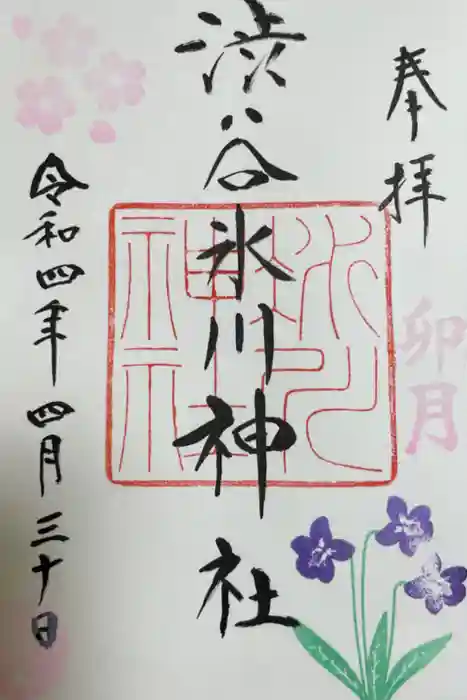 奉拝
卯月
渋谷氷川神社
令和四年四月三十日